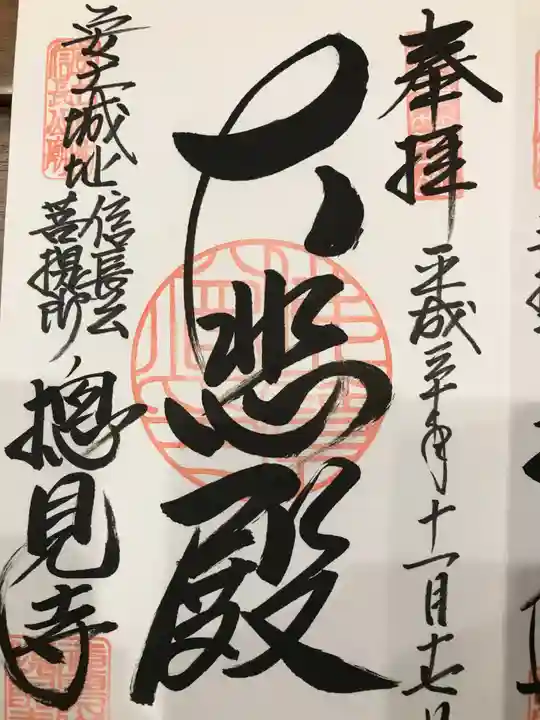 奉拝
平成三十年十一月十七日
大悲殿
安土城址
信長公
菩提所
摠見寺